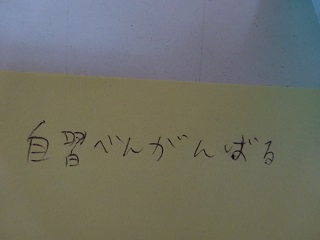 自習べんがんばる